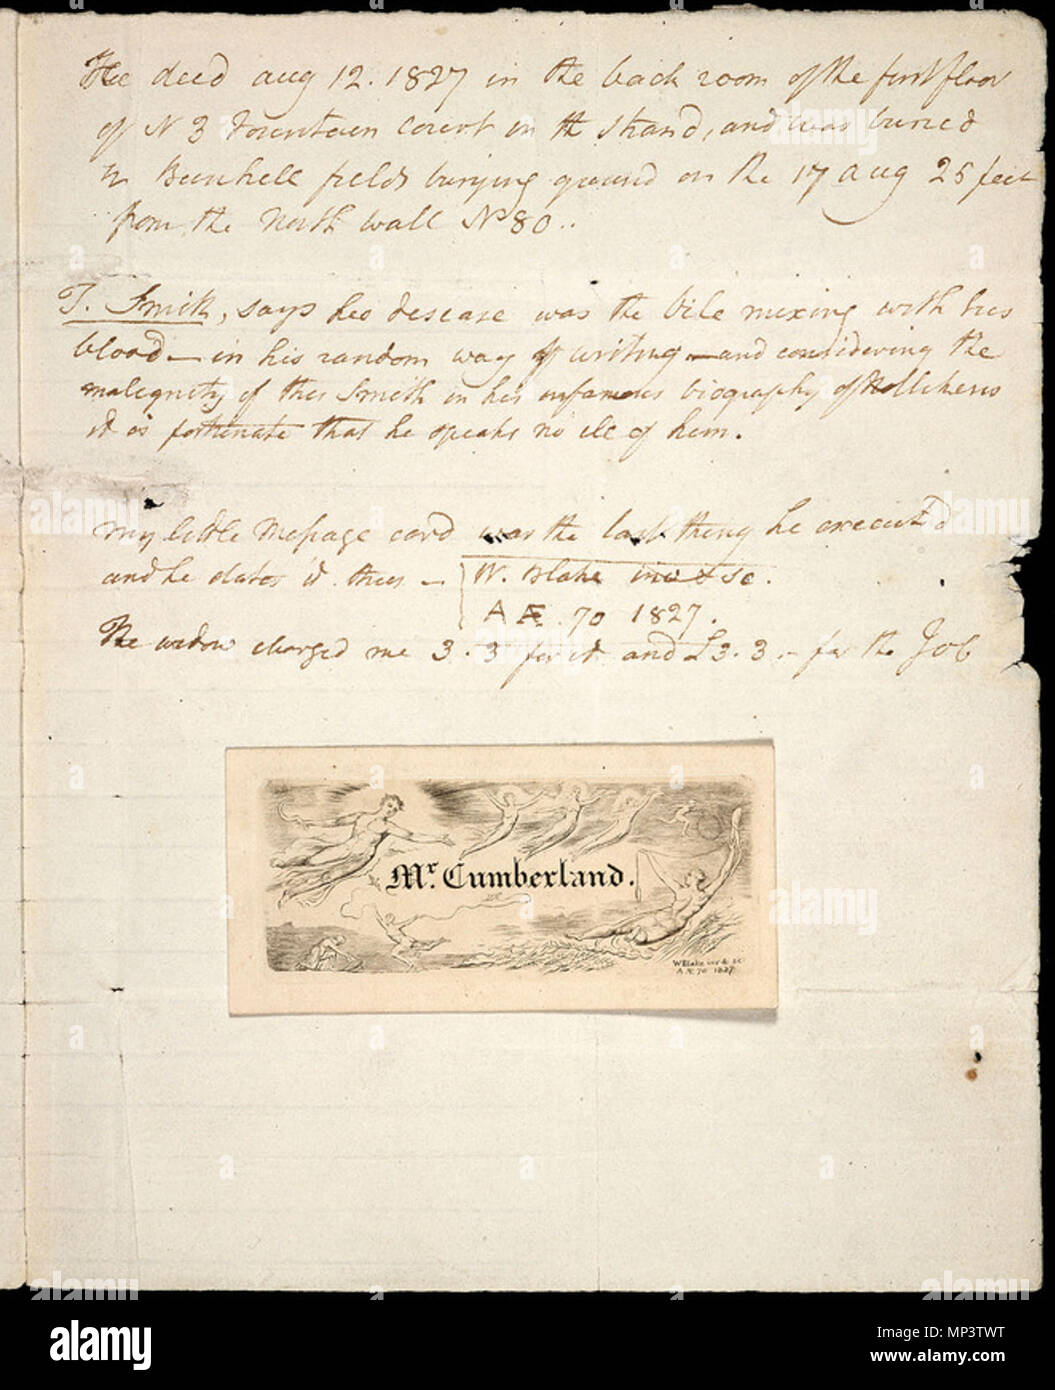 He died aug 12. 1827 in the back room of the first floor
of N 3 Fountain Court in the Strand, and was buried
in Bunhill fields burying ground on the 17 aug 25 feet
from the North wall No 80..
T. Smith, says his disease was the bile mixing with his
blood — in his random way of writing — and considering the
malignity of this Smith in his infamous biography of Nollikens
it is fortunate that he speaks no ill of him.
my little Message card was the last thing he execut'd
and he dates it thus — W. Blake inv & sc.
A Æ. 70 1827.
The widow charged me 3.3 for it and £3.3 - for the Job
Mr. Cumberland.
W Blake inv & sc
A Æ 70 1827
alamy
Image ID: MP3TWT
www.alamy.com